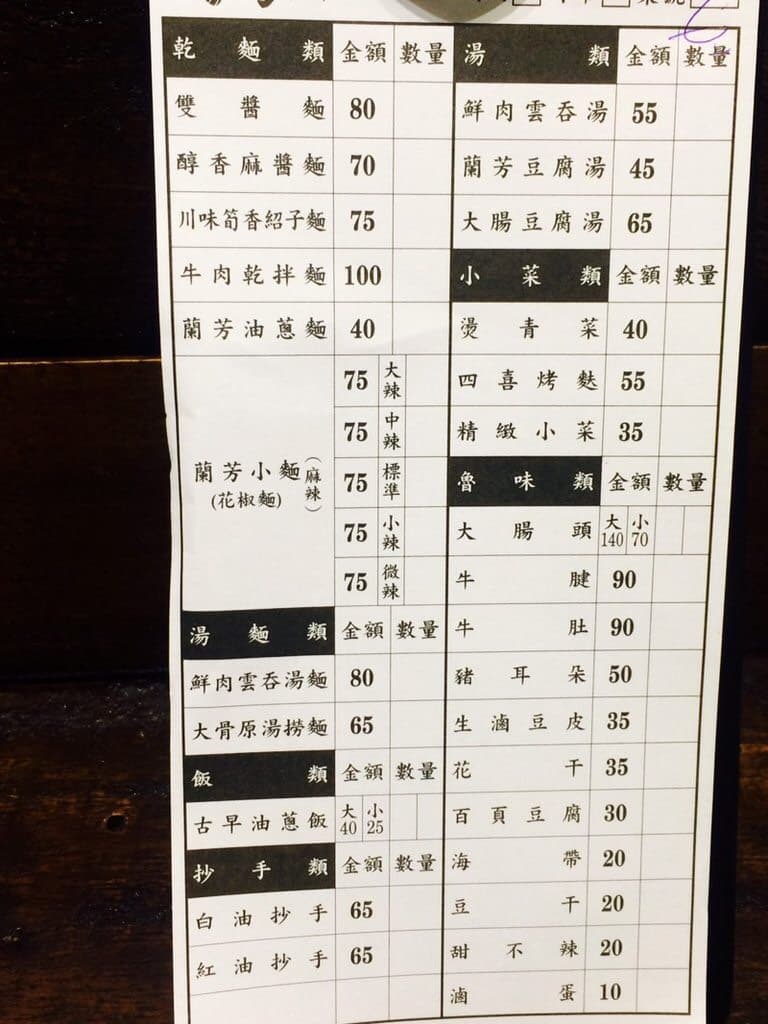 乾麵類 金額 數量
雙醬麵 80
醇香麻醬麵 70
川味筍香紹子麵 75
牛肉乾拌麵 100
蘭芳油蔥麵 40
蘭芳小麵(麻辣)
(花椒麵)
75 大辣
75 中辣
75 標準
75 小辣
75 微辣
湯麵類 金額 數量
鮮肉雲吞湯麵 80
大骨原湯撈麵 65
飯類 金額 數量
古早油蔥飯 大40 小25
抄手類 金額 數量
白油抄手 65
紅油抄手 65
湯類 金額 數量
鮮肉雲吞湯 55
蘭芳豆腐湯 45
大腸豆腐湯 65
小菜類 金額 數量
燙青菜 40
四喜烤麩 55
精緻小菜 35
魯味類 金額 數量
大腸頭 大140 小70
牛腱 90
牛肚 90
豬耳朵 50
生滷豆皮 35
花干 35
百頁豆腐 30
海帶 20
豆干 20
甜不辣 20
滷蛋 10